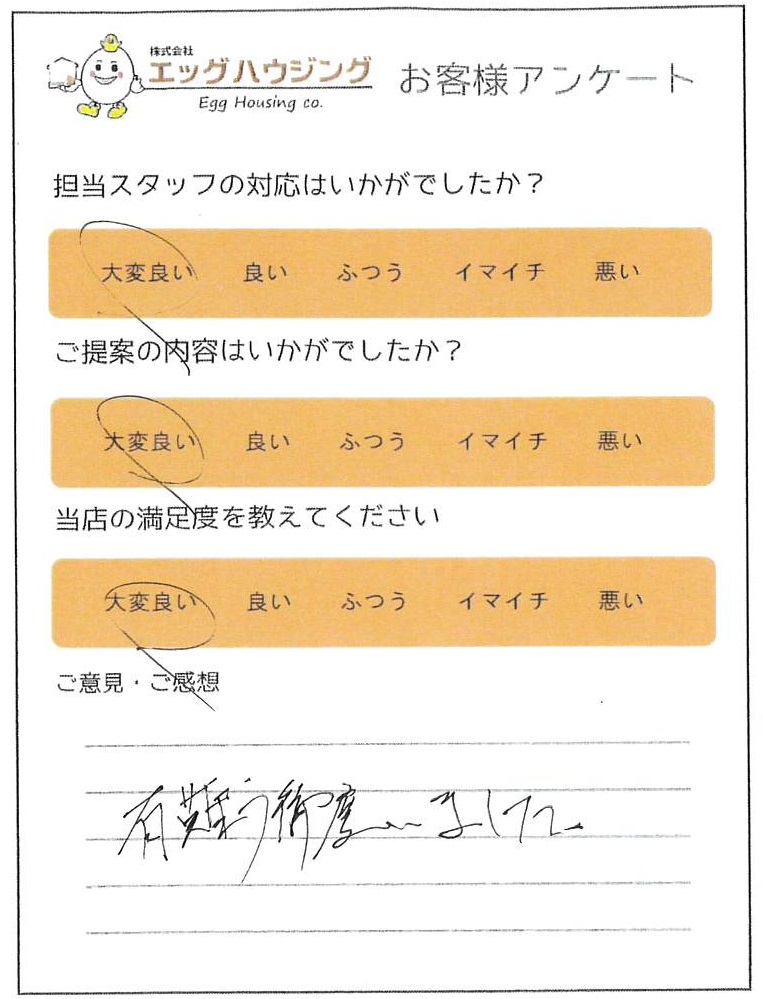 株式会社
エッグハウジング
Egg Housing co.
お客様アンケート
担当スタッフの対応はいかがでしたか？
大変良い 良い ふつう イマイチ 悪い
ご提案の内容はいかがでしたか？
大変良い 良い ふつう イマイチ 悪い
当店の満足度を教えてください
大変良い 良い ふつう イマイチ 悪い
ご意見・ご感想
有難う御座いました。